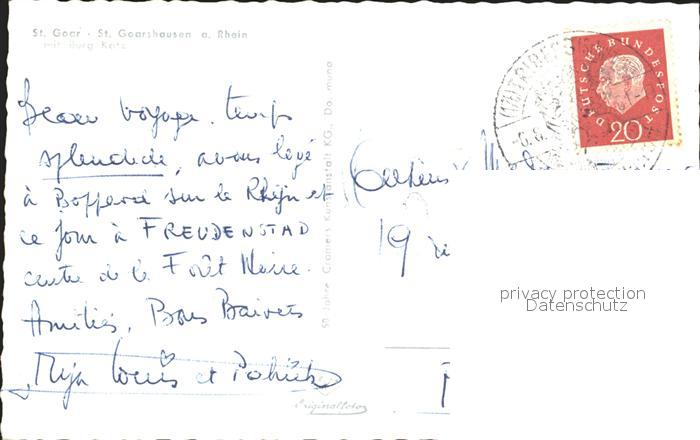 St. Goar - St. Goarshausen a. Rhein
mit Burg Katz
Beau voyage. temps
splendide, avons logé
à Boppard sur le Rhin et
ce jour à FREUDENSTAD
centre de la Forêt Noire.
Amitiés, Bons Baisers
Louis et
50 Jahre Cramers Kunstanstalt KG., Dortmund
Originalfoto
DEUTSCHE BUNDESPOST
20
19
privacy protection
Datenschutz